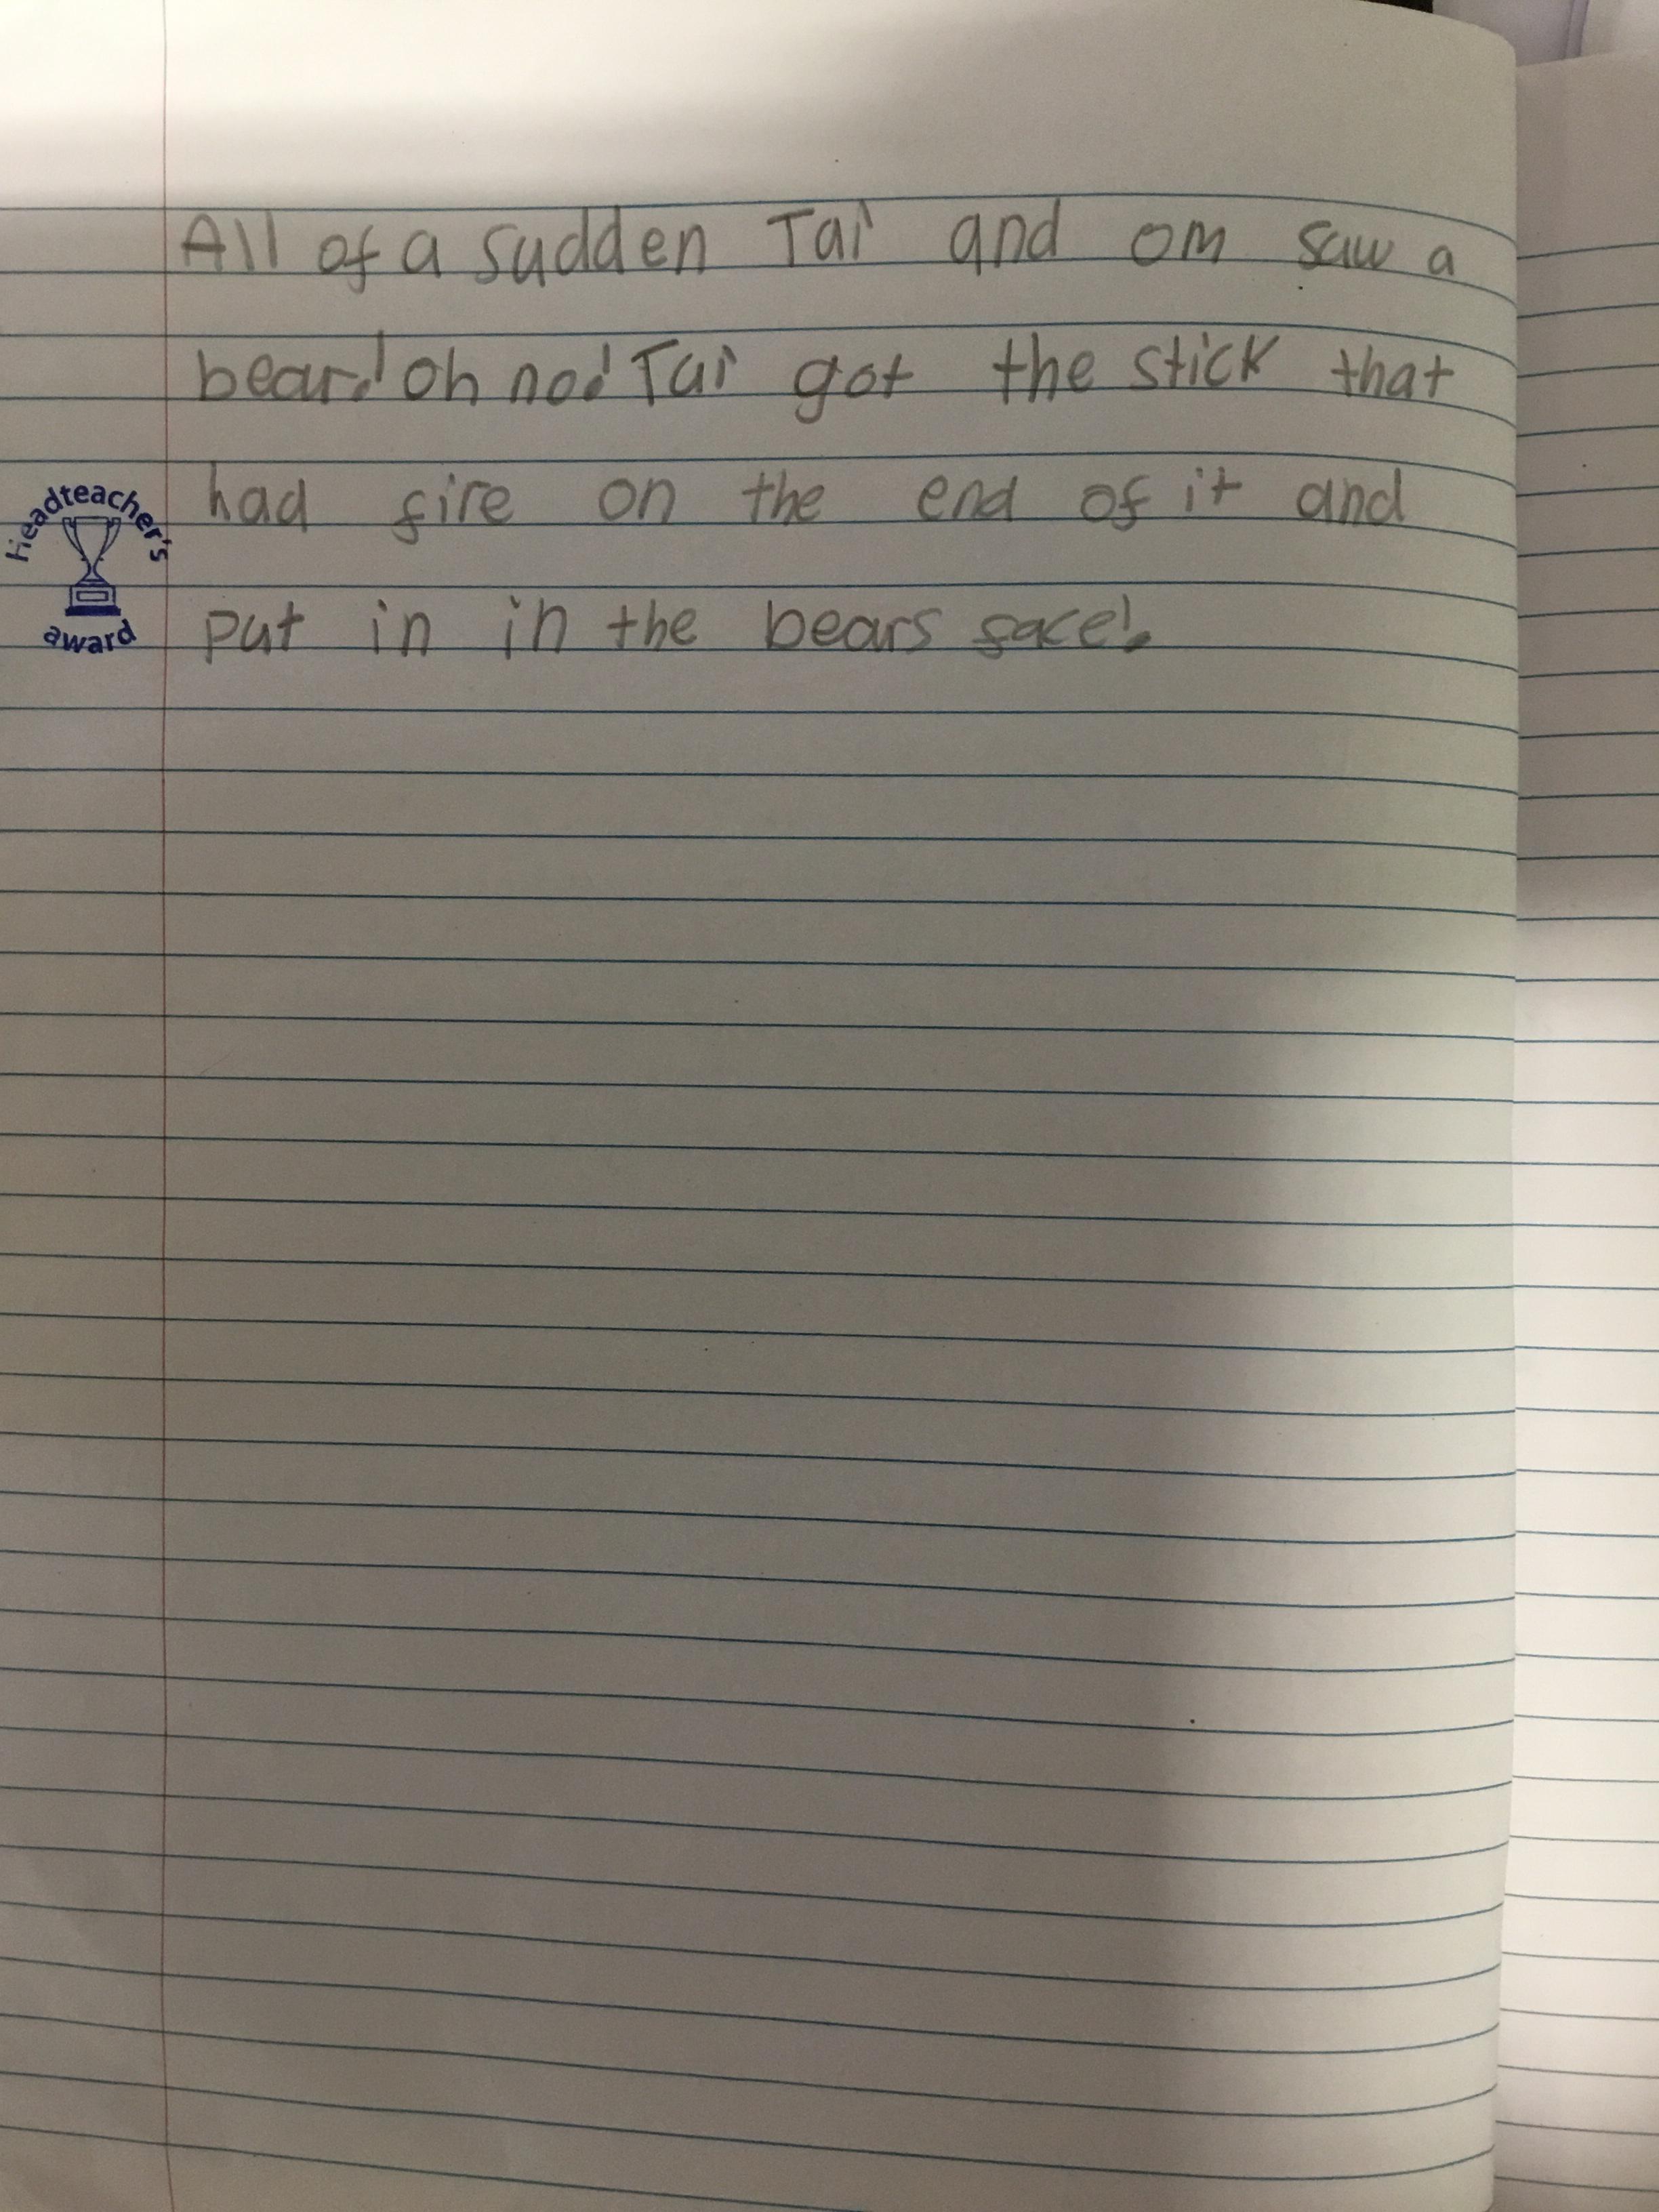 All of a sudden Tai and om saw a
bear! oh no! Tai got the stick that
had fire on the end of it and
put in in the bears face!
Headteacher's
award